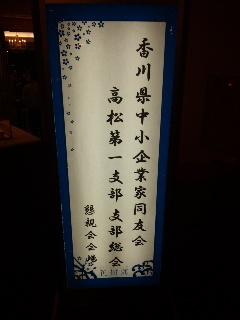 香川県中小企業家同友会
高松第一支部 支部総会
懇親会会場